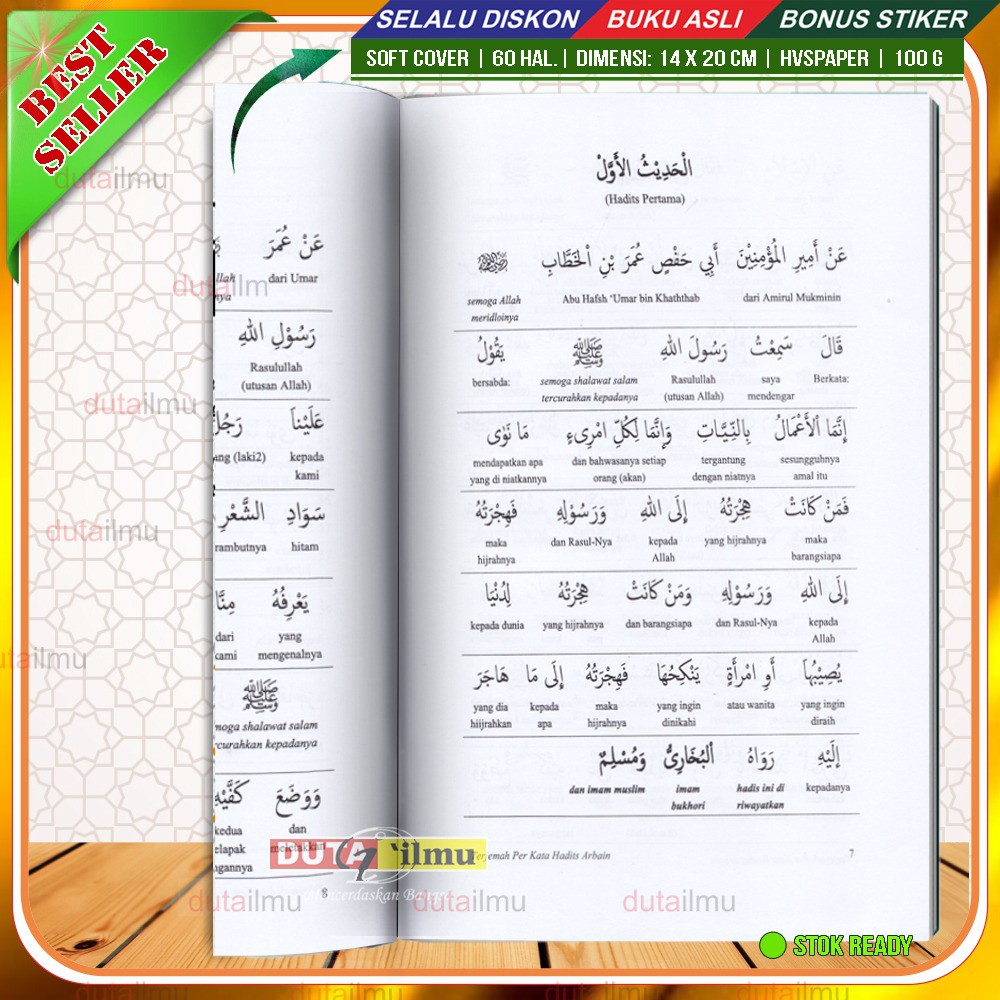 BEST SELLER
SELALU DISKON BUKU ASLI BONUS STIKER
SOFT COVER | 60 HAL. | DIMENSI: 14 X 20 CM | HVSPAPER | 100 G
الْحَدِيْثُ الْأَوَّلْ
(Hadits Pertama)
عَنْ أَمِيرِ الْمُؤْمِنِيْنَ أَبِي حَفْصٍ عُمَرَ بْنِ الْخَطَّابِ
dari Amirul Mukminin Abu Hafsh ‘Umar bin Khaththab semoga Allah
meridloinya
قَالَ سَمِعْتُ رَسُولَ اللهِ ﷺ يَقُوْلُ
Berkata: saya Rasulullah semoga shalawat salam bersabda:
mendengar (utusan Allah) tercurahkan kepadanya
إِنَّمَا الْأَعْمَالُ بِالنِّيَّاتِ وَإِنَّمَا لِكُلِّ امْرِىءٍ مَا نَوٰى
sesungguhnya tergantung dan bahwasanya setiap mendapatkan apa
amal itu dengan niatnya orang (akan) yang di niatkannya
فَمَنْ كَانَتْ هِجْرَتُهُ إِلَى اللهِ وَرَسُوْلِهِ فَهِجْرَتُهُ
maka yang hijrahnya kepada dan Rasul-Nya maka
barangsiapa Allah hijrahnya
إِلَى اللهِ وَرَسُوْلِهِ وَمَنْ كَانَتْ هِجْرَتُهُ لِدُنْيَا
kepada dan Rasul-Nya dan barangsiapa yang hijrahnya kepada dunia
Allah
يُصِيْبُهَا أَوِ امْرَأَةٍ يَنْكِحُهَا فَهِجْرَتُهُ إِلَى مَا هَاجَرَ
yang ingin atau wanita yang ingin maka kepada yang dia
diraih dinikahi hijrahnya apa hiijrahkan
إِلَيْهِ رَوَاهُ الْبُخَارِيُّ وَمُسْلِمٌ
kepadanya hadis ini di imam dan imam muslim
riwayatkan bukhori
Terjemah Per Kata Hadits Arbain 7
عَنْ عُمَرَ
dari Umar
رَسُوْلِ اللهِ
Rasulullah
(utusan Allah)
عَلَيْنَا
kepada (laki2)
kami
سَوَادِ الشَّعْرِ
hitam rambutnya
يَعْرِفُهُ مِنَّا
yang dari
mengenalnya kami
ﷺ
shalawat salam
kepadanya
وَوَضَعَ كَفَّيْهِ
dan kedua
meletakkan
8
DUTA ilmu
Mencerdaskan Bangsa
STOK READY
dutailmu
dutailm
dutailmu
dutailmu
dutailmu
dutailmu
dutailmu
dutailmu
dutailmu
dutailmu